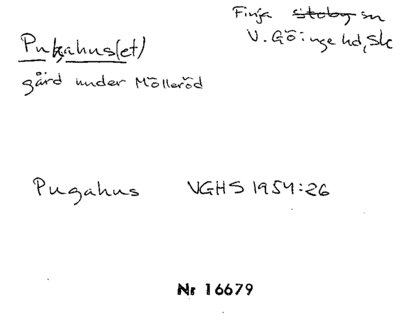 Finja stoby sn
V. Göinge hd, Sk
Pukahus(et)
gård under Mölleröd
Pugahus VGHS 1954:26
Nr 16679